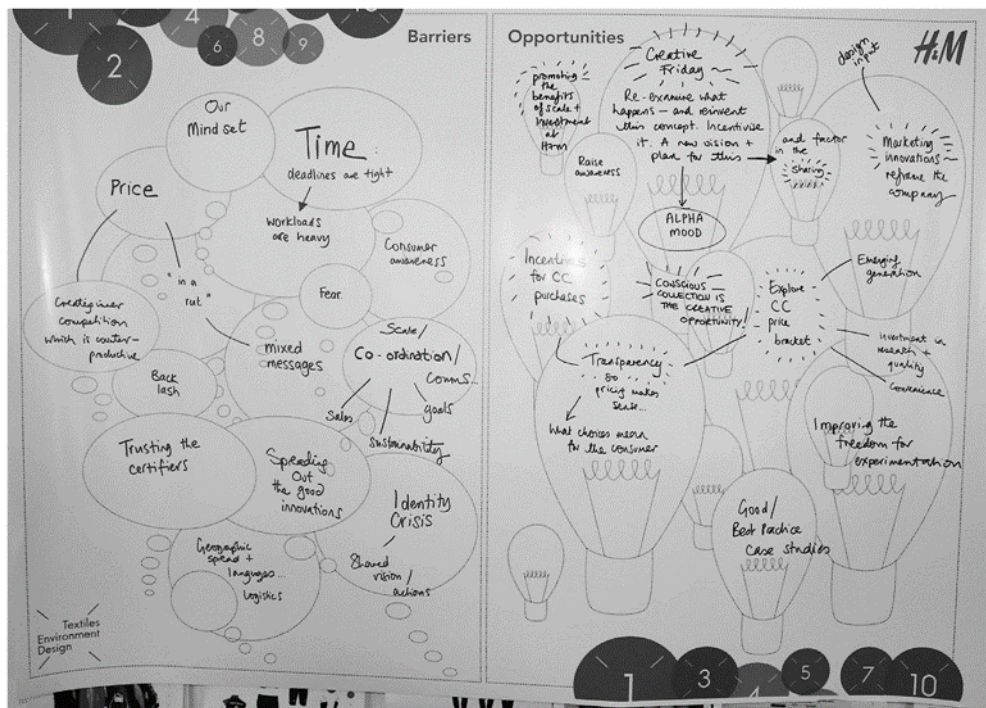 1
4
10
2
6
8
9
Barriers
Our
Mind set
Time:
deadlines are tight
Price
workloads
are heavy
Consumer
awareness
"in a
rut"
Fear
Creating inner
competition
which is counter-
productive
mixed
messages
Scale/
Co-ordination/
Comms...
goals
Sales
Sustainability
Back
lash
Trusting the
certifiers
Spreading
Out
the good
innovations
Identity
Crisis
Shared
vision/
actions
Geographic
spread +
languages...
logistics
Textiles
Environment
Design
Opportunities
H&M
promoting
the
benefits
of scale +
investment
at
H+M
Creative
Friday
Re-examine what
happens — and reinvent
this concept. Incentivise
it. A new vision +
plan for this
and factor
in the
sharing
design
input
Marketing
innovations
reframe the
company
Raise
awareness
ALPHA
MOOD
Incentives
for CC
purchases
CONSCIOUS
COLLECTION IS
THE CREATIVE
OPPORTUNITY!
Explore
CC
price
bracket
Emerging
generation
investment in
research +
quality
Convenience
Transparency
so
pricing makes
sense...
What choices mean
for the consumer
Improving the
freedom for
experimentation
Good/
Best Practice
case studies
1
3
4
5
7
10